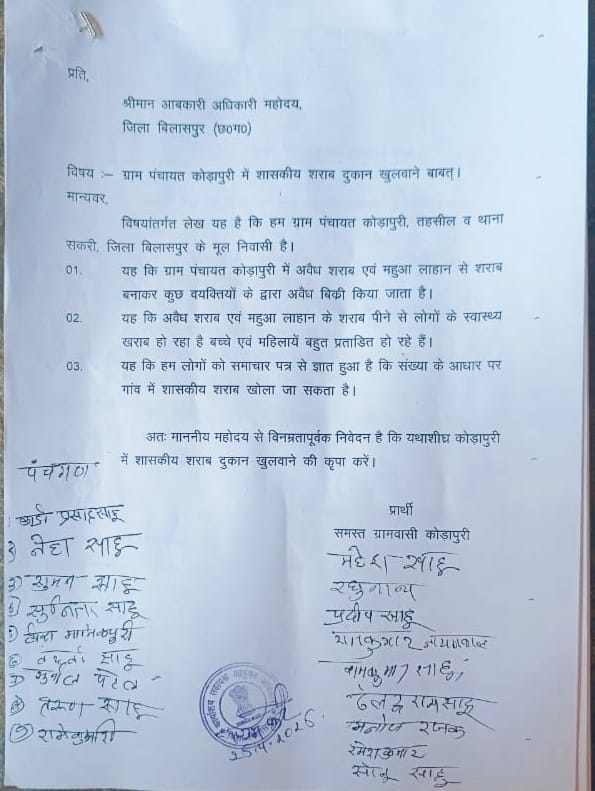 प्रति,
श्रीमान आबकारी अधिकारी महोदय,
जिला बिलासपुर (छ०ग०)
विषय :– ग्राम पंचायत कोड़ापुरी में शासकीय शराब दुकान खुलवाने बाबत्।
मान्यवर,
विषयांतर्गत लेख यह है कि हम ग्राम पंचायत कोड़ापुरी, तहसील व थाना
सकरी, जिला बिलासपुर के मूल निवासी है।
01. यह कि ग्राम पंचायत कोड़ापुरी में अवैध शराब एवं महुआ लाहान से शराब
बनाकर कुछ वयक्तियों के द्वारा अवैध बिक्री किया जाता है।
02. यह कि अवैध शराब एवं महुआ लाहान के शराब पीने से लोगों के स्वास्थ्य
खराब हो रहा है बच्चे एवं महिलायें बहुत प्रताडित हो रहे हैं।
03. यह कि हम लोगों को समाचार पत्र से ज्ञात हुआ है कि संख्या के आधार पर
गांव में शासकीय शराब खोला जा सकता है।
अतः माननीय महोदय से विनम्रतापूर्वक निवेदन है कि यथाशीघ्र कोड़ापुरी
में शासकीय शराब दुकान खुलवाने की कृपा करें।
पंचगण
प्रसाद साहू
नेहा साहू
सुमन साहू
सुनिता साहू
मानिकपुरी
साहू
पटेल
तरुण साहू
रामेकुमारी
प्रार्थी
समस्त ग्रामवासी कोड़ापुरी
महेश साहू
प्रदीप साहू
राजकुमार जायसवाल
साहू
रामसाहू
मनोज रजक
रमेश कुमार
सोनू साहू